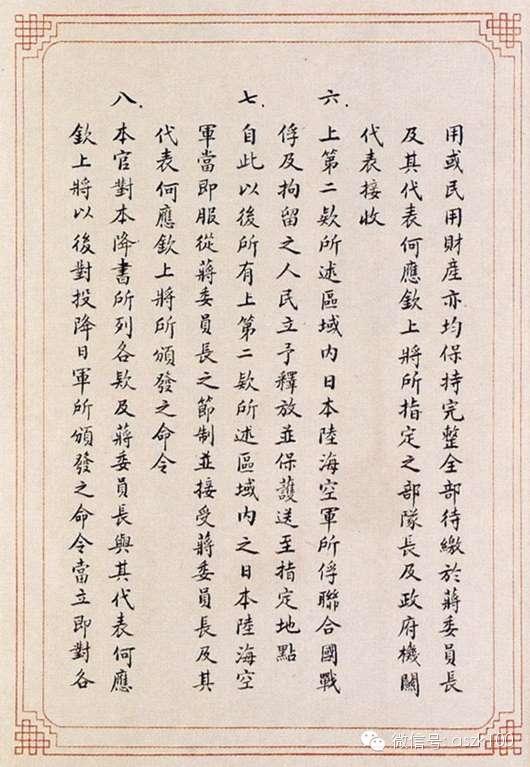 用或民用財產亦均保持完整全部待繳於蔣委員長
及其代表何應欽上將所指定之部隊長及政府機關
代表接收
六.上第二欵所述區域內日本陸海空軍所俘聯合國戰
俘及拘留之人民立予釋放並保護送至指定地點
七.自此以後所有上第二欵所述區域內之日本陸海空
軍當即服從蔣委員長之節制並接受蔣委員長及其
代表何應欽上將所頒發之命令
八.本官對本降書所列各欵及蔣委員長與其代表何應
欽上將以後對投降日軍所頒發之命令當立即對各
微信号: qszh100